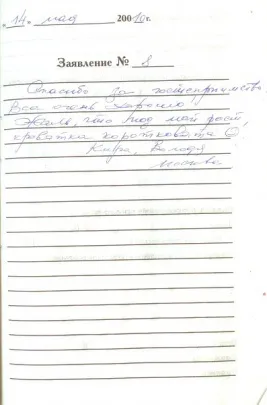 14 мая 20010г.
Заявление № 8
Спасибо за гостеприимство
Все очень хорошо
Жаль, что под мой рост,
кроватка коротковата ☺
Кира, Володя
Москва